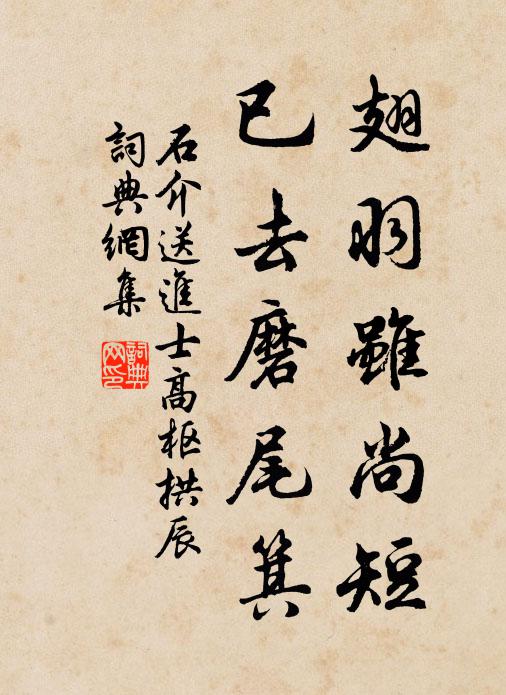 翅羽雖尚短
已去磨尾箕
石介送進士高枢拱辰
詞典網集
詞典网印